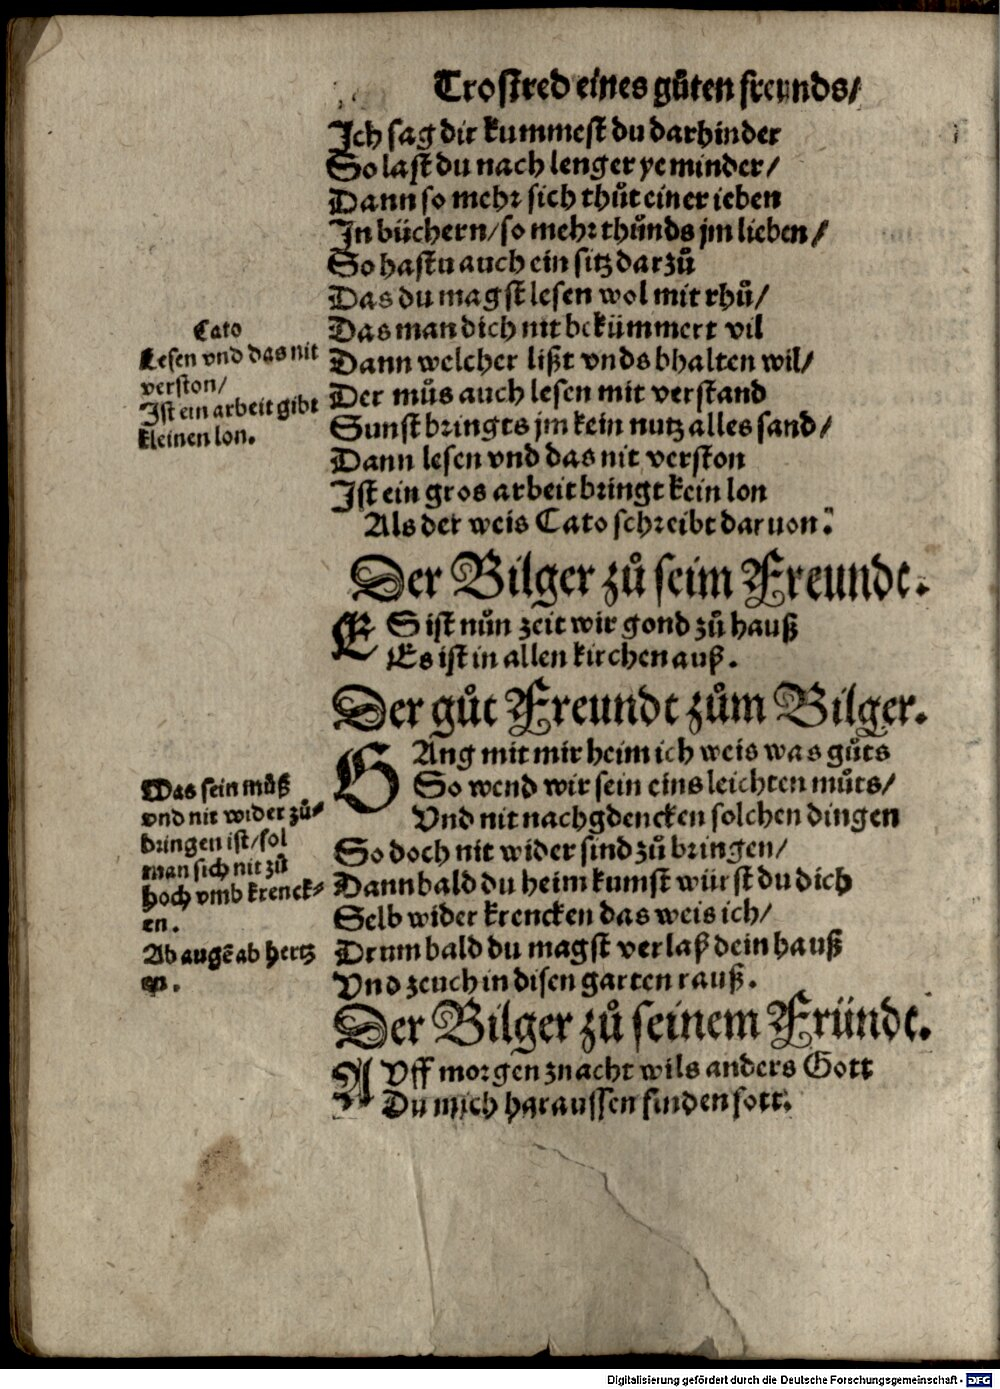 Trostred eines gůten freunds/
Ich sag dir kummest du darhinder
So last du nach lenger ye minder/
Dann so mehr sich thůt einer ieben
In büchern/so mehr thůnds jm lieben/
So hastu auch ein sitz darzů
Das du magst lesen wol mit rhů/
Das man dich nit bekümmert vil
Dann welcher lißt vnds bhalten wil/
Der můs auch lesen mit verstand
Sunst bringts jm kein nutz alles sand/
Dann lesen vnd das nit verston
Ist ein gros arbeit bringt kein lon
Als der weis Cato schreibt daruon:
Cato
Lesen vnd das nit
verston/
Ist ein arbeit gibt
kleinen lon.
Der Bilger zů seim Freundt.
ES ist nůn zeit wir gond zů hauß
Es ist in allen kirchen auß.
Der gůt Freundt zům Bilger.
GAng mit mir heim ich weis was gůts
So wend wir sein eins leichten můts/
Vnd nit nachgdencken solchen dingen
So doch nit wider sind zů bringen/
Dann bald du heim kumst würst du dich
Selb wider krencken das weis ich/
Drum bald du magst verlaß dein hauß
Vnd zeuch in disen garten rauß.
Was sein můß
vnd nit wider zů-
bringen ist/sol
man sich nit zů
hoch vmb krenck-
en.
Ab augẽ ab hertz
en.
Der Bilger zů seinem Fründt.
AVff morgen znacht wils anders Gott
Du mich haraussen finden sott.
Digitalisierung gefördert durch die Deutsche Forschungsgemeinschaft - DFG